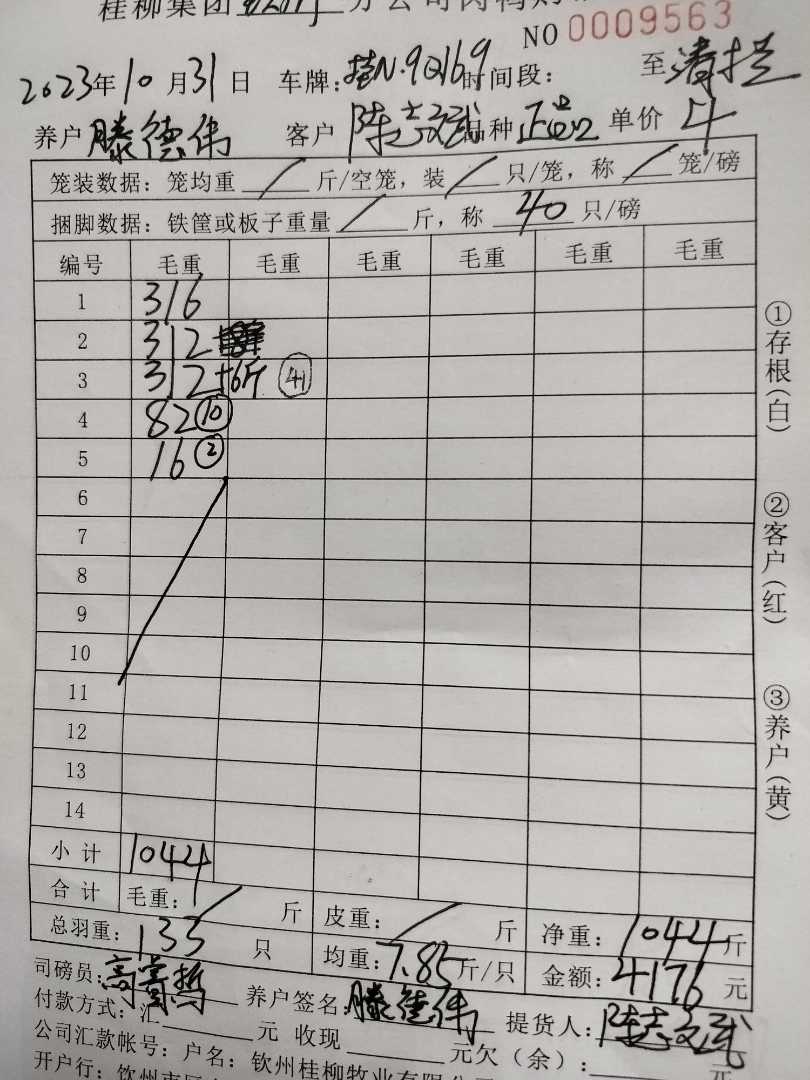 桂柳集团 分公司肉鸭购
NO 0009563
2023年10月31日 车牌:桂N·9Q169 时间段: 至 清
养户 滕德伟 客户 陈志文武 品种 正品 单价 4
笼装数据:笼均重 / 斤/空笼,装 / 只/笼,称 / 笼/磅
捆脚数据:铁筐或板子重量 / 斤,称 40 只/磅
编号 毛重 毛重 毛重 毛重 毛重 毛重
1 316
2 312
3 312+6斤 41
4 82 10
5 16 2
6
7
8
9
10
11
12
13
14
小计 1044
合计 毛重: / 斤 皮重: / 斤 净重: 1044 斤
总羽重: 133 只 均重: 7.85 斤/只 金额: 4176 元
司磅员: 养户签名: 滕德伟 提货人: 陈志文武
付款方式:汇 元 收现 元欠(余): 元
公司汇款帐号:户名:钦州桂柳牧业有限公司
开户行:钦州市区
①存根(白)
②客户(红)
③养户(黄)